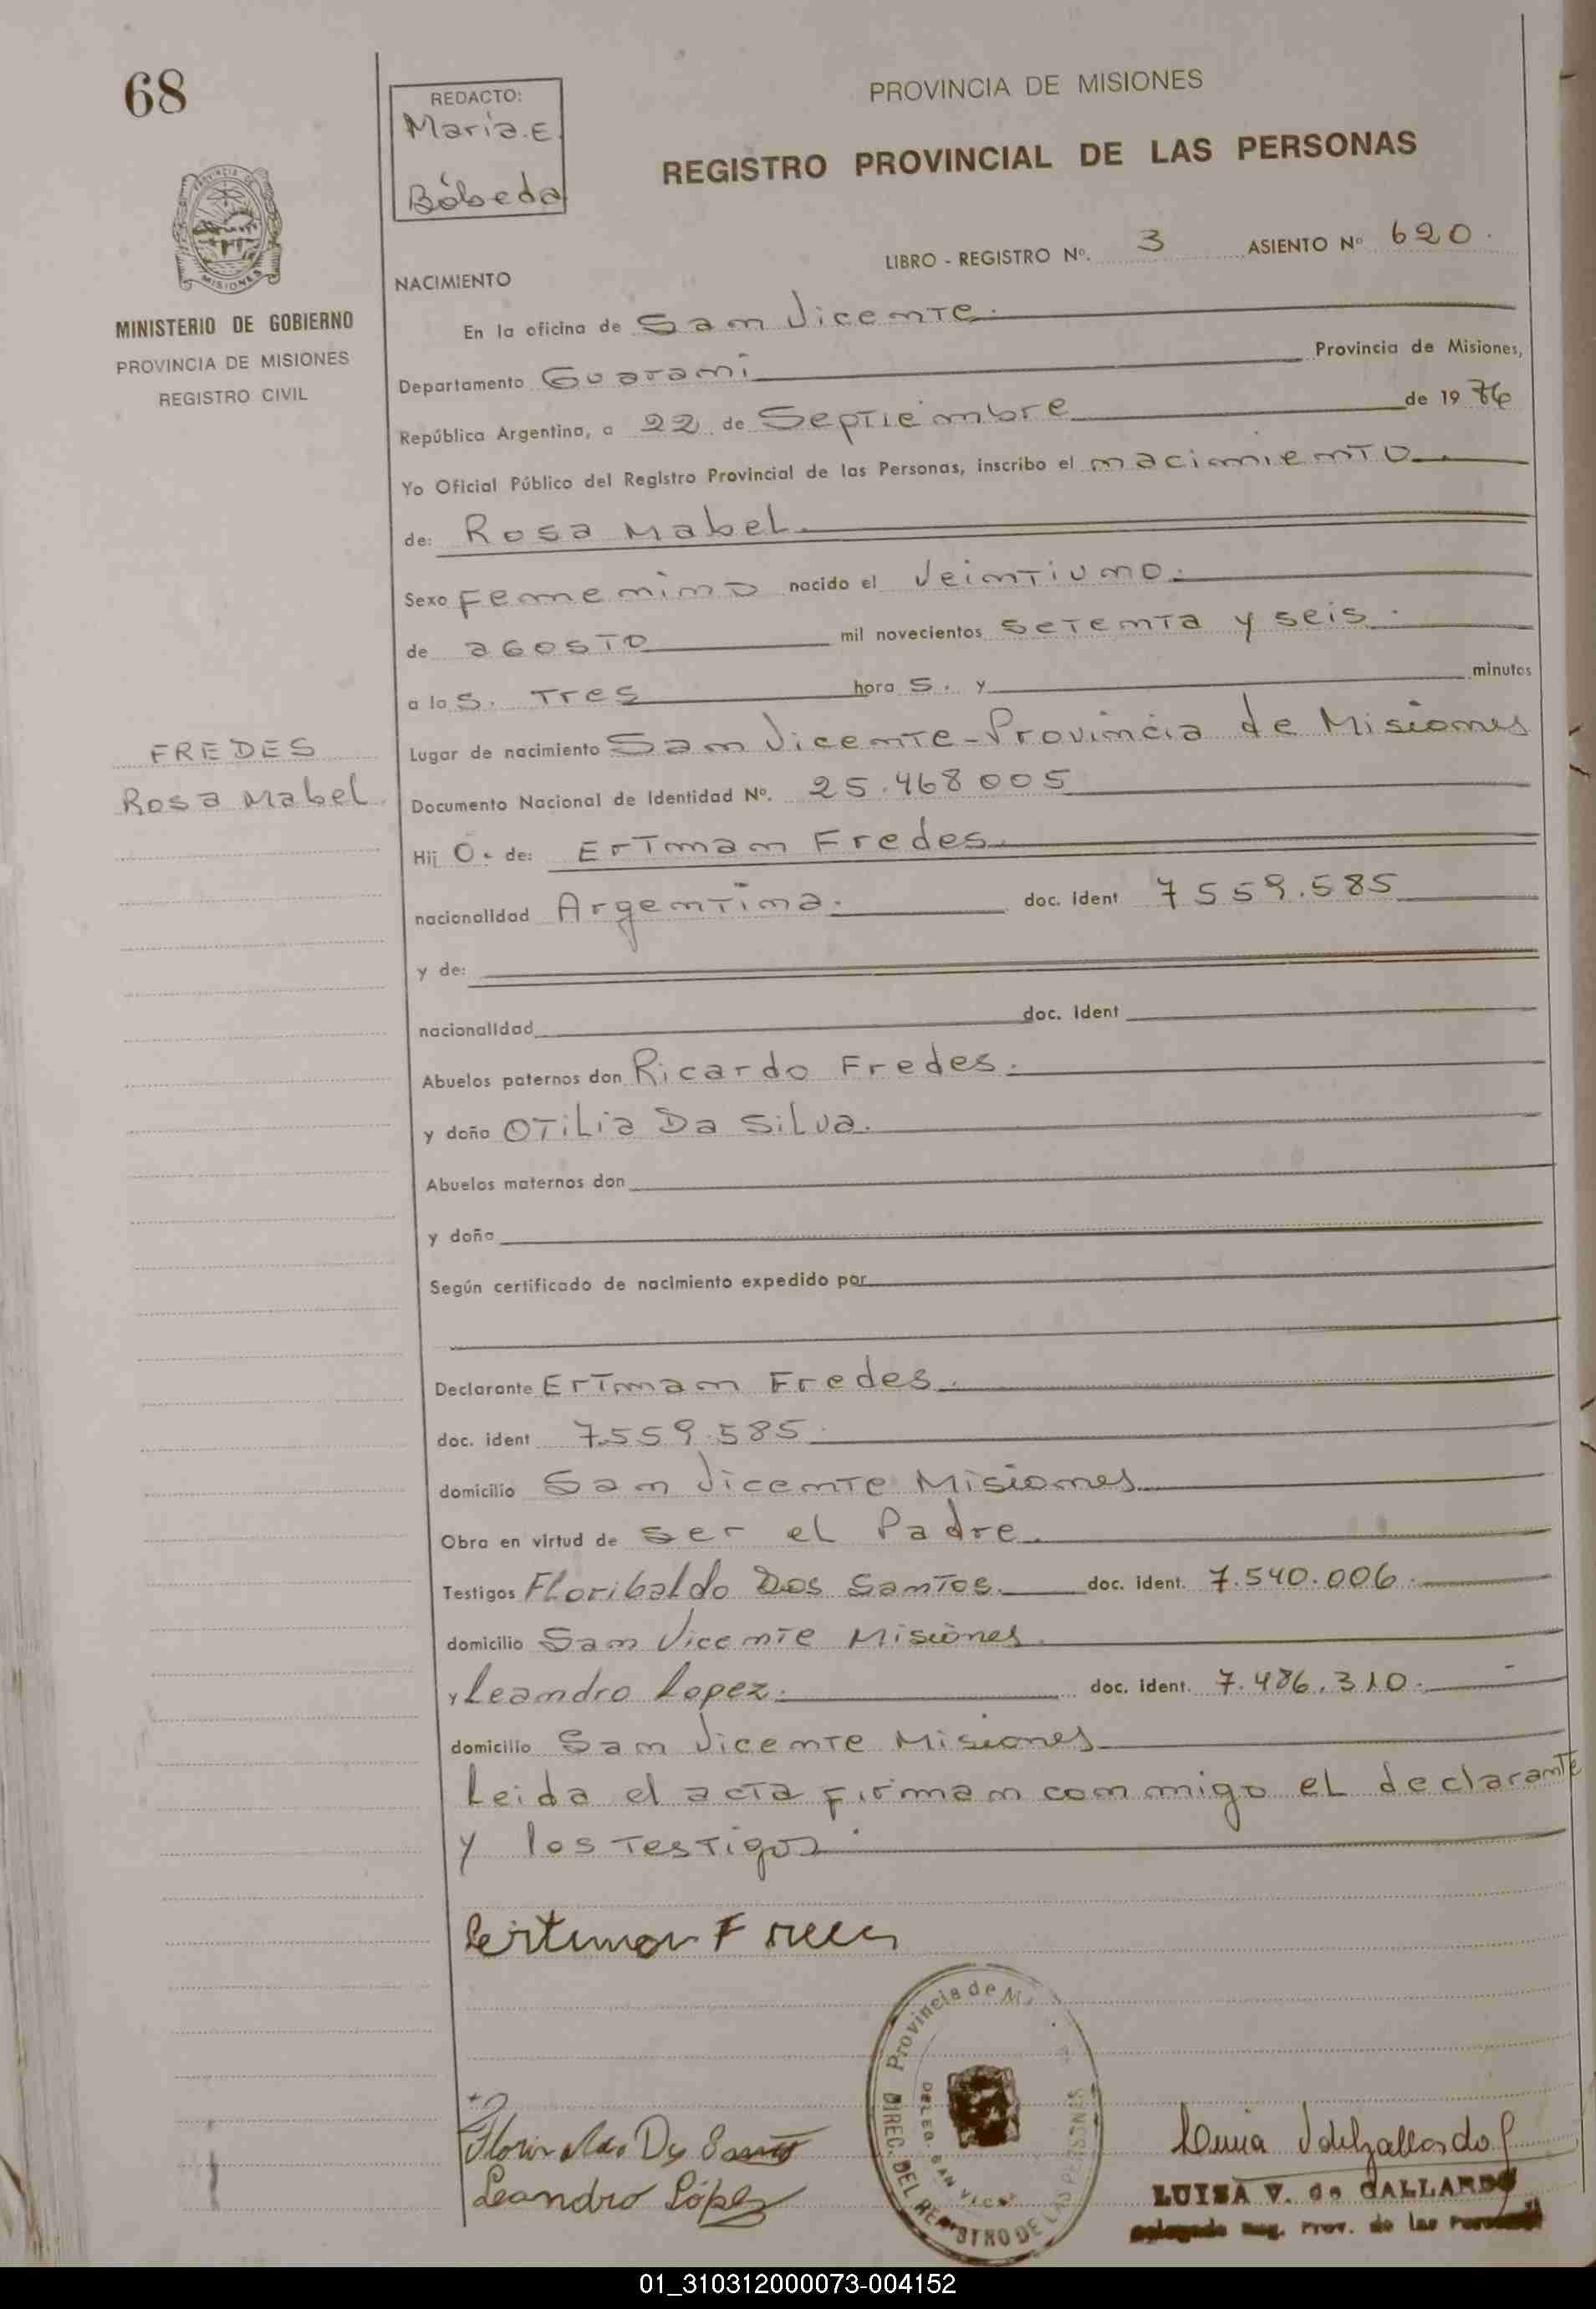 68
REDACTO:
María. E.
Bóbeda
PROVINCIA DE MISIONES
REGISTRO PROVINCIAL DE LAS PERSONAS
LIBRO - REGISTRO Nº. 3 ASIENTO Nº 620.
NACIMIENTO
MISIONES
MINISTERIO DE GOBIERNO
PROVINCIA DE MISIONES
REGISTRO CIVIL
En la oficina de San Vicente.
Departamento Guarani Provincia de Misiones,
República Argentina, a 22 de Septiembre de 1976
Yo Oficial Público del Registro Provincial de las Personas, inscribo el nacimiento.
de: Rosa Mabel.
Sexo Femenino nacido el Veintiuno.
de agosto mil novecientos setenta y seis.
a las. Tres hora s. y minutos
Lugar de nacimiento San Vicente - Provincia de Misiones
FREDES
Rosa Mabel.
Documento Nacional de Identidad Nº. 25.468005
Hij O. de: Ertman Fredes.
nacionalidad Argentina. doc. ident 7559.585
y de:
nacionalidad doc. ident
Abuelos paternos don Ricardo Fredes.
y doña Otilia Da Silva.
Abuelos maternos don
y doña
Según certificado de nacimiento expedido por
Declarante Ertman Fredes.
doc. ident 7.559.585.
domicilio San Vicente Misiones
Obra en virtud de ser el Padre.
Testigos Floribaldo Dos Santos. doc. ident. 7.540.006.
domicilio San Vicente Misiones
y Leandro Lopez. doc. ident. 7.486.310.
domicilio San Vicente Misiones
Leida el acta firman conmigo el declarante
y los testigos.
Provincia de
DIREC. DEL REGISTRO DE LAS PERSONAS
DELEG. SAN VICE
Leandro López
LUISA V. de GALLARDO
Delegada Reg. Prov. de las Personas
01_310312000073-004152